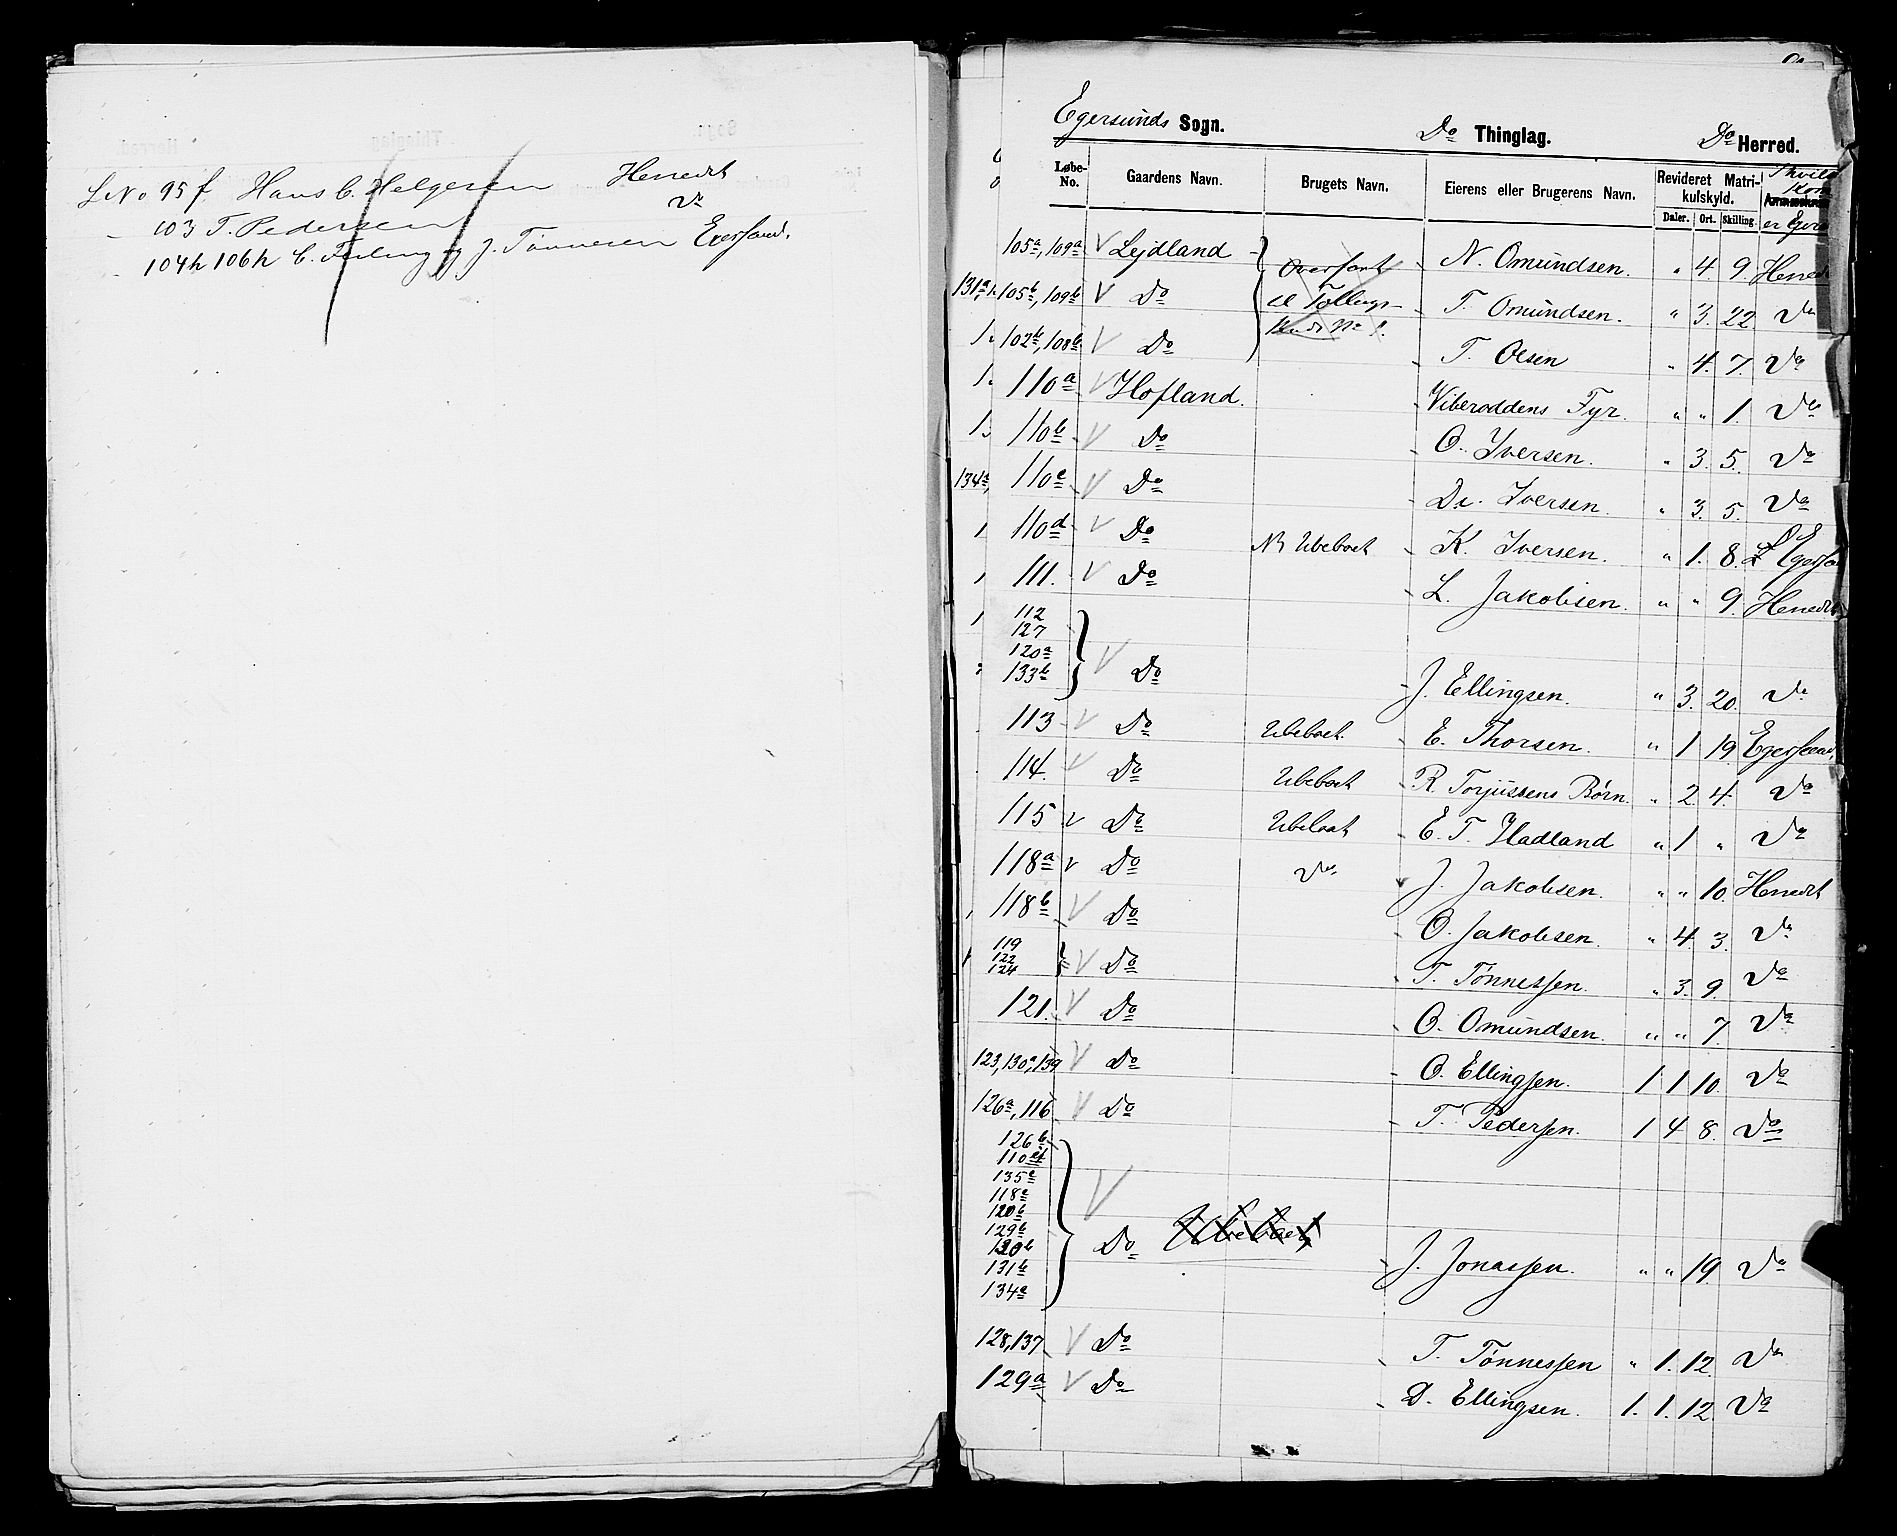 LNo 95 f. Hans C. Helgesen Henedt
– 103 T. Pedersen Do
104h 106h C. og J. Tønnesen Egersund.
Egersunds Sogn. Do Thinglag. Do Herred.
Løbe-No. Gaardens Navn. Brugets Navn. Eierens eller Brugerens Navn. Revideret Matrikulskyld. Daler. Ort. Skilling.
105a, 109a V Lejdland N. Omundsen. " 4. 9. Henedt
105b, 109b V Do T. Omundsen. " 3. 22 Do
102b, 108b V Do T. Olsen " 4. 7. Do
110a V Hofland. Viberoddens Fyr. " " 1. Do
110b V Do O. Iversen. " 3. 5. Do
110c V Do Dr. Iversen. " 3. 5. Do
110d V Do Ubeboet K. Iversen. " 1. 8. Egersund
111. V Do L. Jakobsen. " " 9. Henedt
112
127
120a
133b V Do J. Ellingsen. " 3. 20. Do
113 V Do Ubeboet. E. Thorsen. " 1 19 Egersund.
114. V Do Ubeboet R. Torjussens Børn. " 2 4. Do
115 V Do Ubeboet E. T. Hadland " 1 " Do
118a V Do Do J. Jakobsen. " " 10. Henedt
118b V Do O. Jakobsen. " 4. 3. Do
119
122
124 V Do T. Tønnessen. " 3. 9. Do
121. V Do O. Omundsen. " " 7. Do
123, 130a, 139 V Do O. Ellingsen. 1 1 10. Do
126a, 116 V Do T. Pedersen. 1 4 8. Do
126b
110
135c
118c
120b
129b
130b
131b
134a V Do Ubeboet J. Jonassen. " " 19 Do
128, 137 V Do T. Tønnessen " 1. 12. Do
129a V Do D. Ellingsen. 1. 1. 12. Do